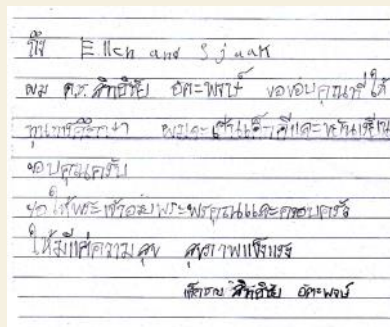 ถึง Ellen and Sjaak
ผม ด.ช. สิทธิชัย อัศะพงษ์ ขอขอบคุณที่ให้
ทุนการศึกษา ผมจะเป็นเด็กดีและขยันเรียน
ขอบคุณครับ
ขอให้พระเจ้าอวยพระพรคุณและครอบครัว
ให้มีแต่ความสุข สุขภาพแข็งแรง
เด็กชาย สิทธิชัย อัศะพงษ์